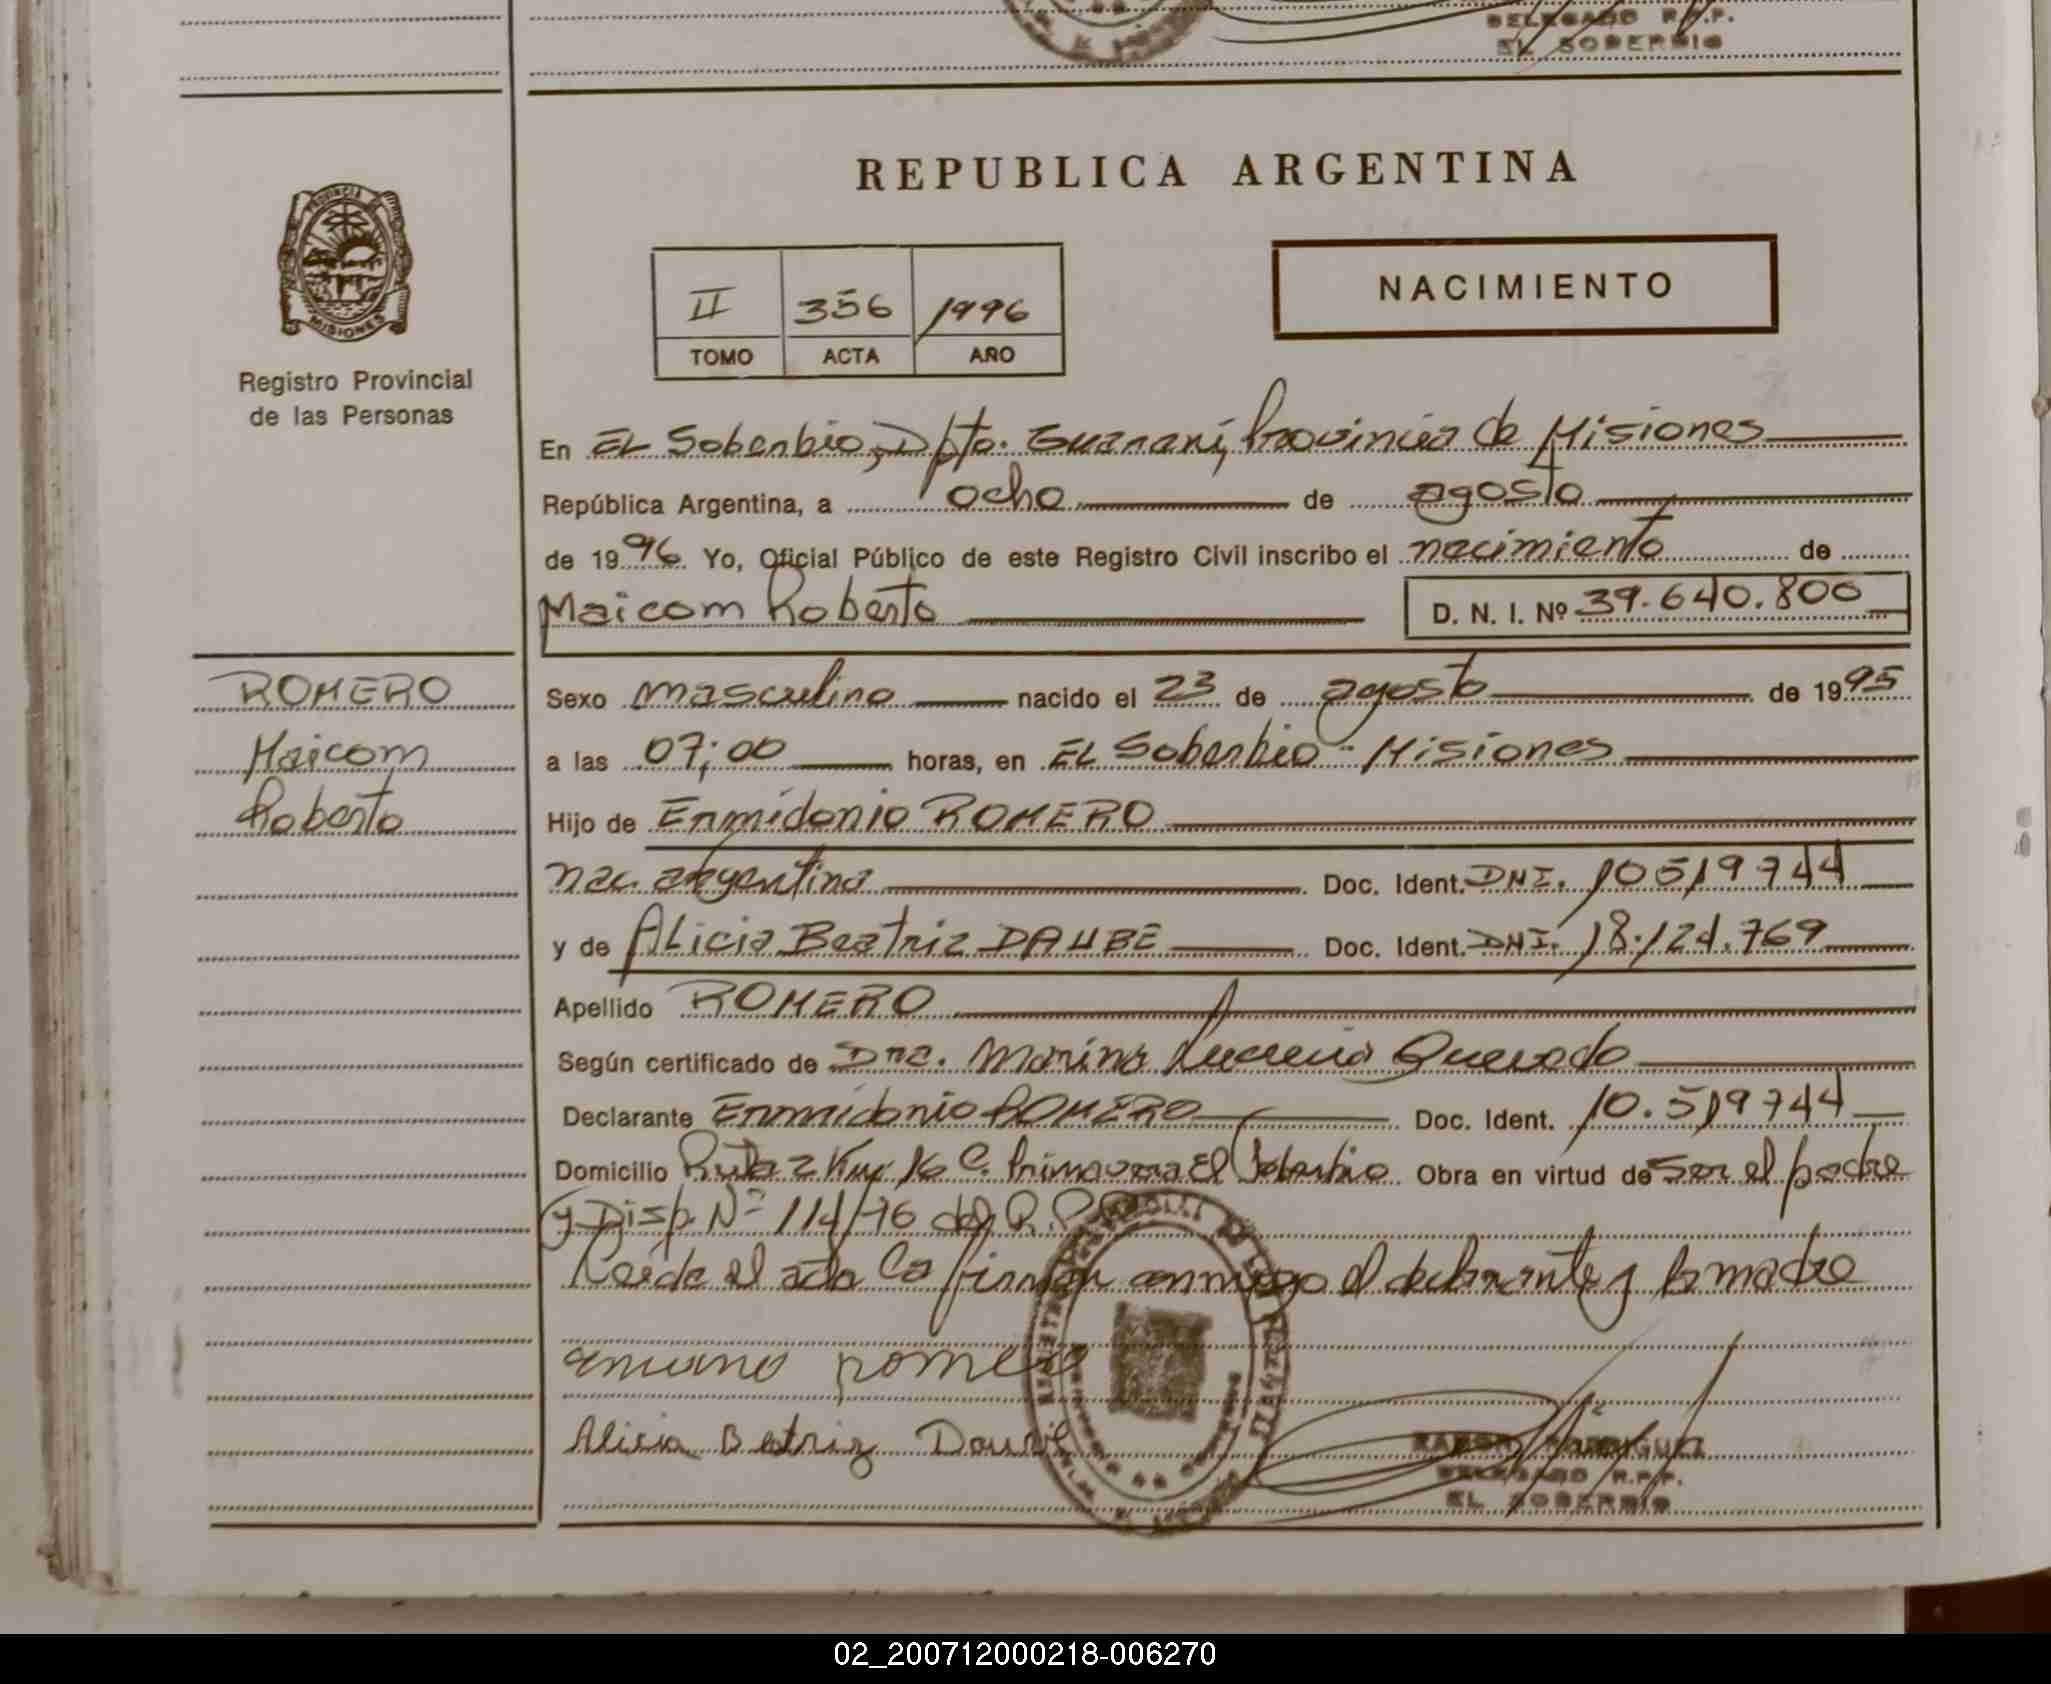 DELEGADO R.P.P.
EL SOBERBIO
REPUBLICA ARGENTINA
PROVINCIA
MISIONES
Registro Provincial
de las Personas
II 356 1996
TOMO ACTA AÑO
NACIMIENTO
En EL Soberbio, Dpto. Guaraní, Provincia de Misiones
República Argentina, a ocho de agosto
de 1996 Yo, Oficial Público de este Registro Civil inscribo el nacimiento de
Maicom Roberto D. N. I. Nº 39.640.800
ROMERO
Maicom
Roberto
Sexo masculino nacido el 23 de agosto de 1995
a las 07;00 horas, en EL Soberbio - Misiones
Hijo de Ermidonio ROMERO
nac. argentina Doc. Ident. DNI. 10519744
y de ALicia Beatriz DAUBE Doc. Ident. DNI. 18.124.769
Apellido ROMERO
Según certificado de Dra. Marina Lucrecia Quevedo
Declarante Ermidonio ROMERO Doc. Ident. 10.519744
Domicilio Ruta 2 Km 16 C. Primavera El Soberbio Obra en virtud de Ser el padre
y Disp. Nº 114/76 del R.P.P.
Leída el acta la firman conmigo el declarante y la madre
romero
Alicia Betriz
RAMON RODRIGUEZ
DELEGADO R.P.P.
EL SOBERBIO
02_200712000218-006270